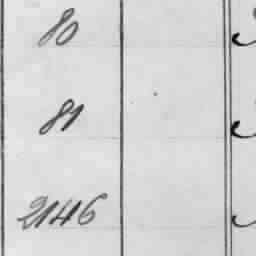 80
81
2146